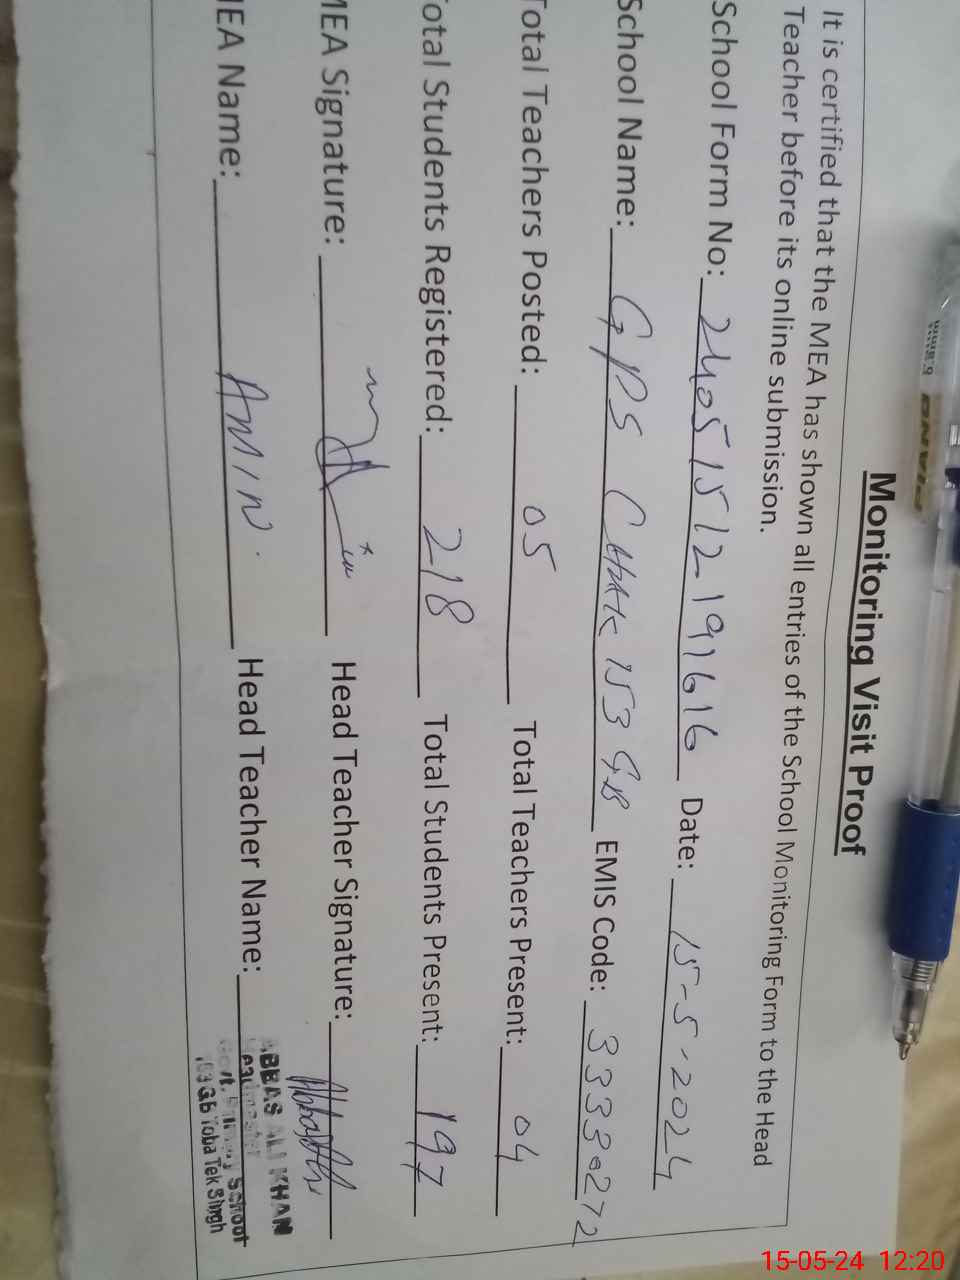 Monitoring Visit Proof
It is certified that the MEA has shown all entries of the School Monitoring Form to the Head
Teacher before its online submission.
School Form No: 24051512191616 Date: 15-5-2024
School Name: GPS CHAK 153 GB EMIS Code: 33330272
Total Teachers Posted: 05 Total Teachers Present: 04
Total Students Registered: 218 Total Students Present: 197
MEA Signature: Head Teacher Signature:
MEA Name: AMIN Head Teacher Name:
ABBAS ALI KHAN
Headmaster
Govt. Primary School
153 Gb Toba Tek Singh
PIANO
0.8mm
15-05-24 12:20